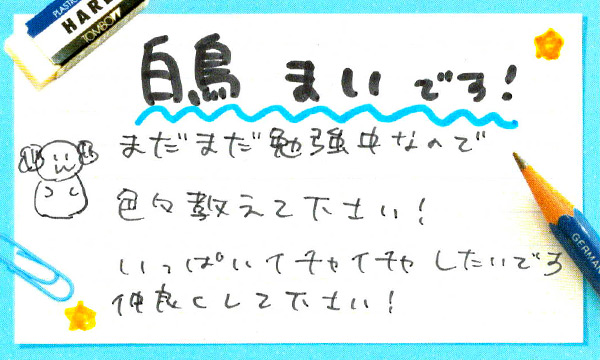 PLASTIC
HARD
TOMBOW
白鳥 まいです!
まだまだ勉強中なので
色々教えて下さい!
いっぱいイチャイチャしたいです
仲良くして下さい!
GERMANY